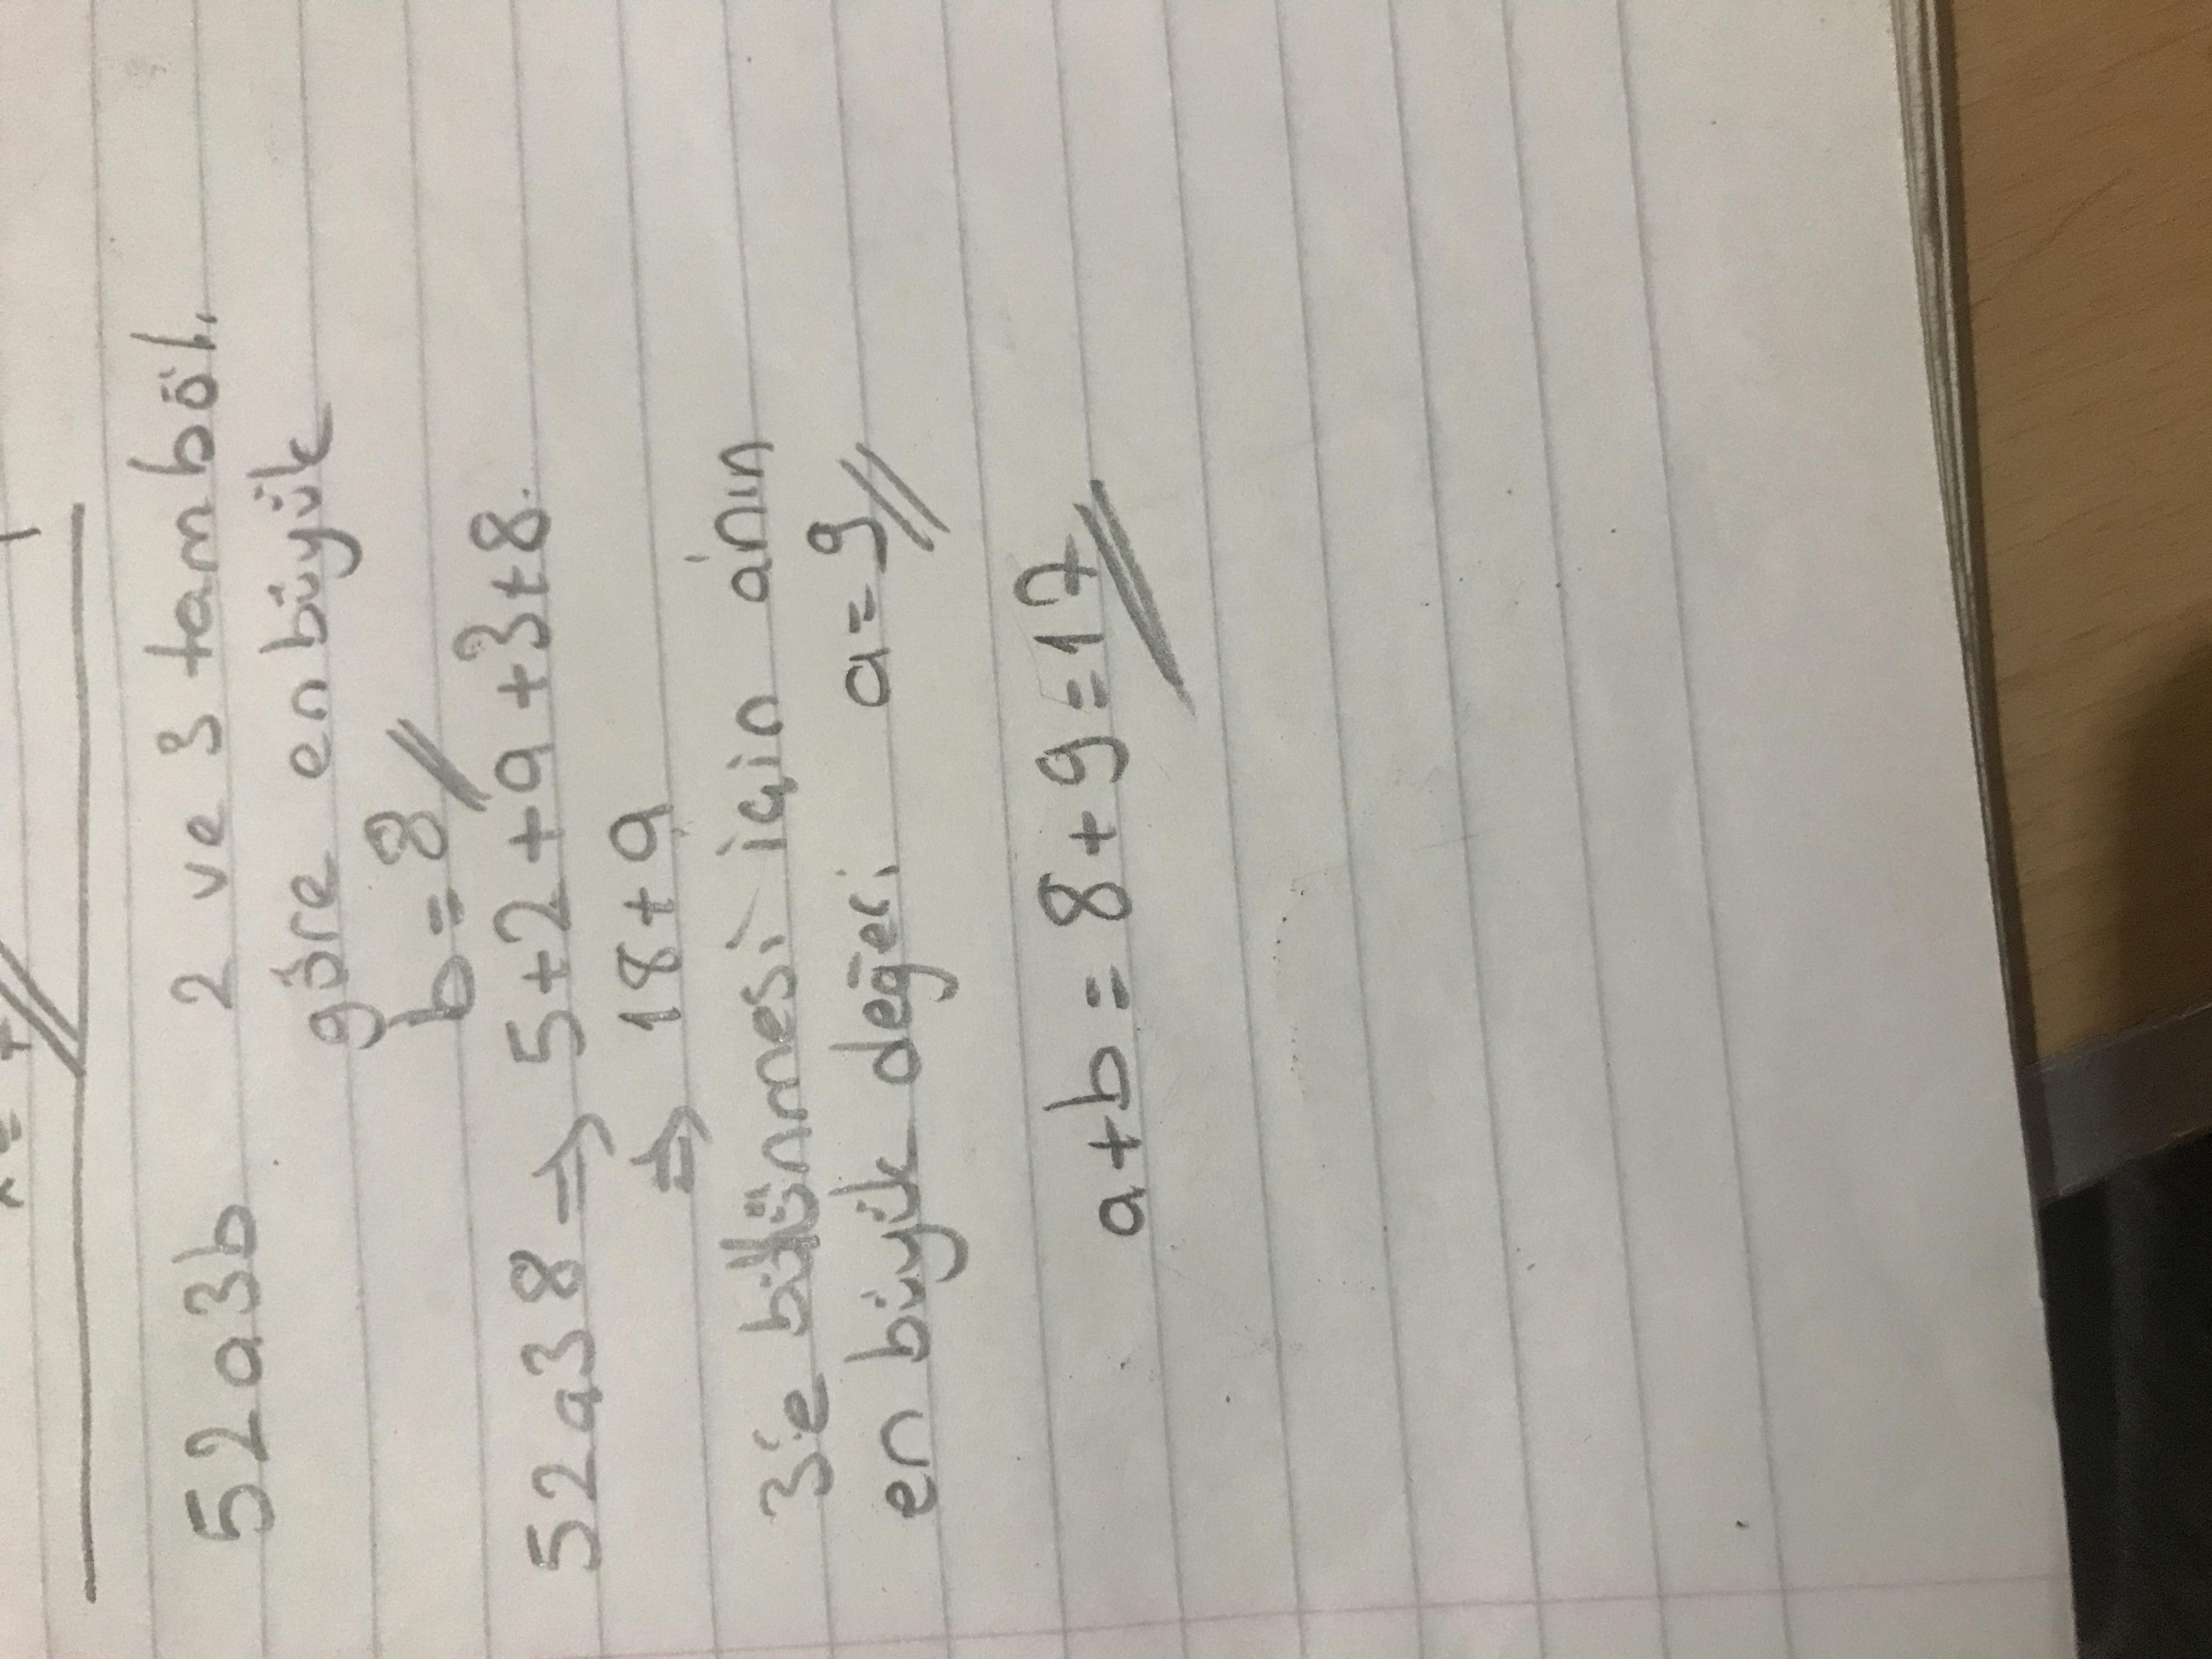 52a3b 2 ve 3 tam böl.
göre en büyük
b=8
52a38 ⇒ 5+2+a+3+8.
⇒ 18+a
3'e bölünmesi için a'nın
en büyük değeri a=9
a+b=8+9=17